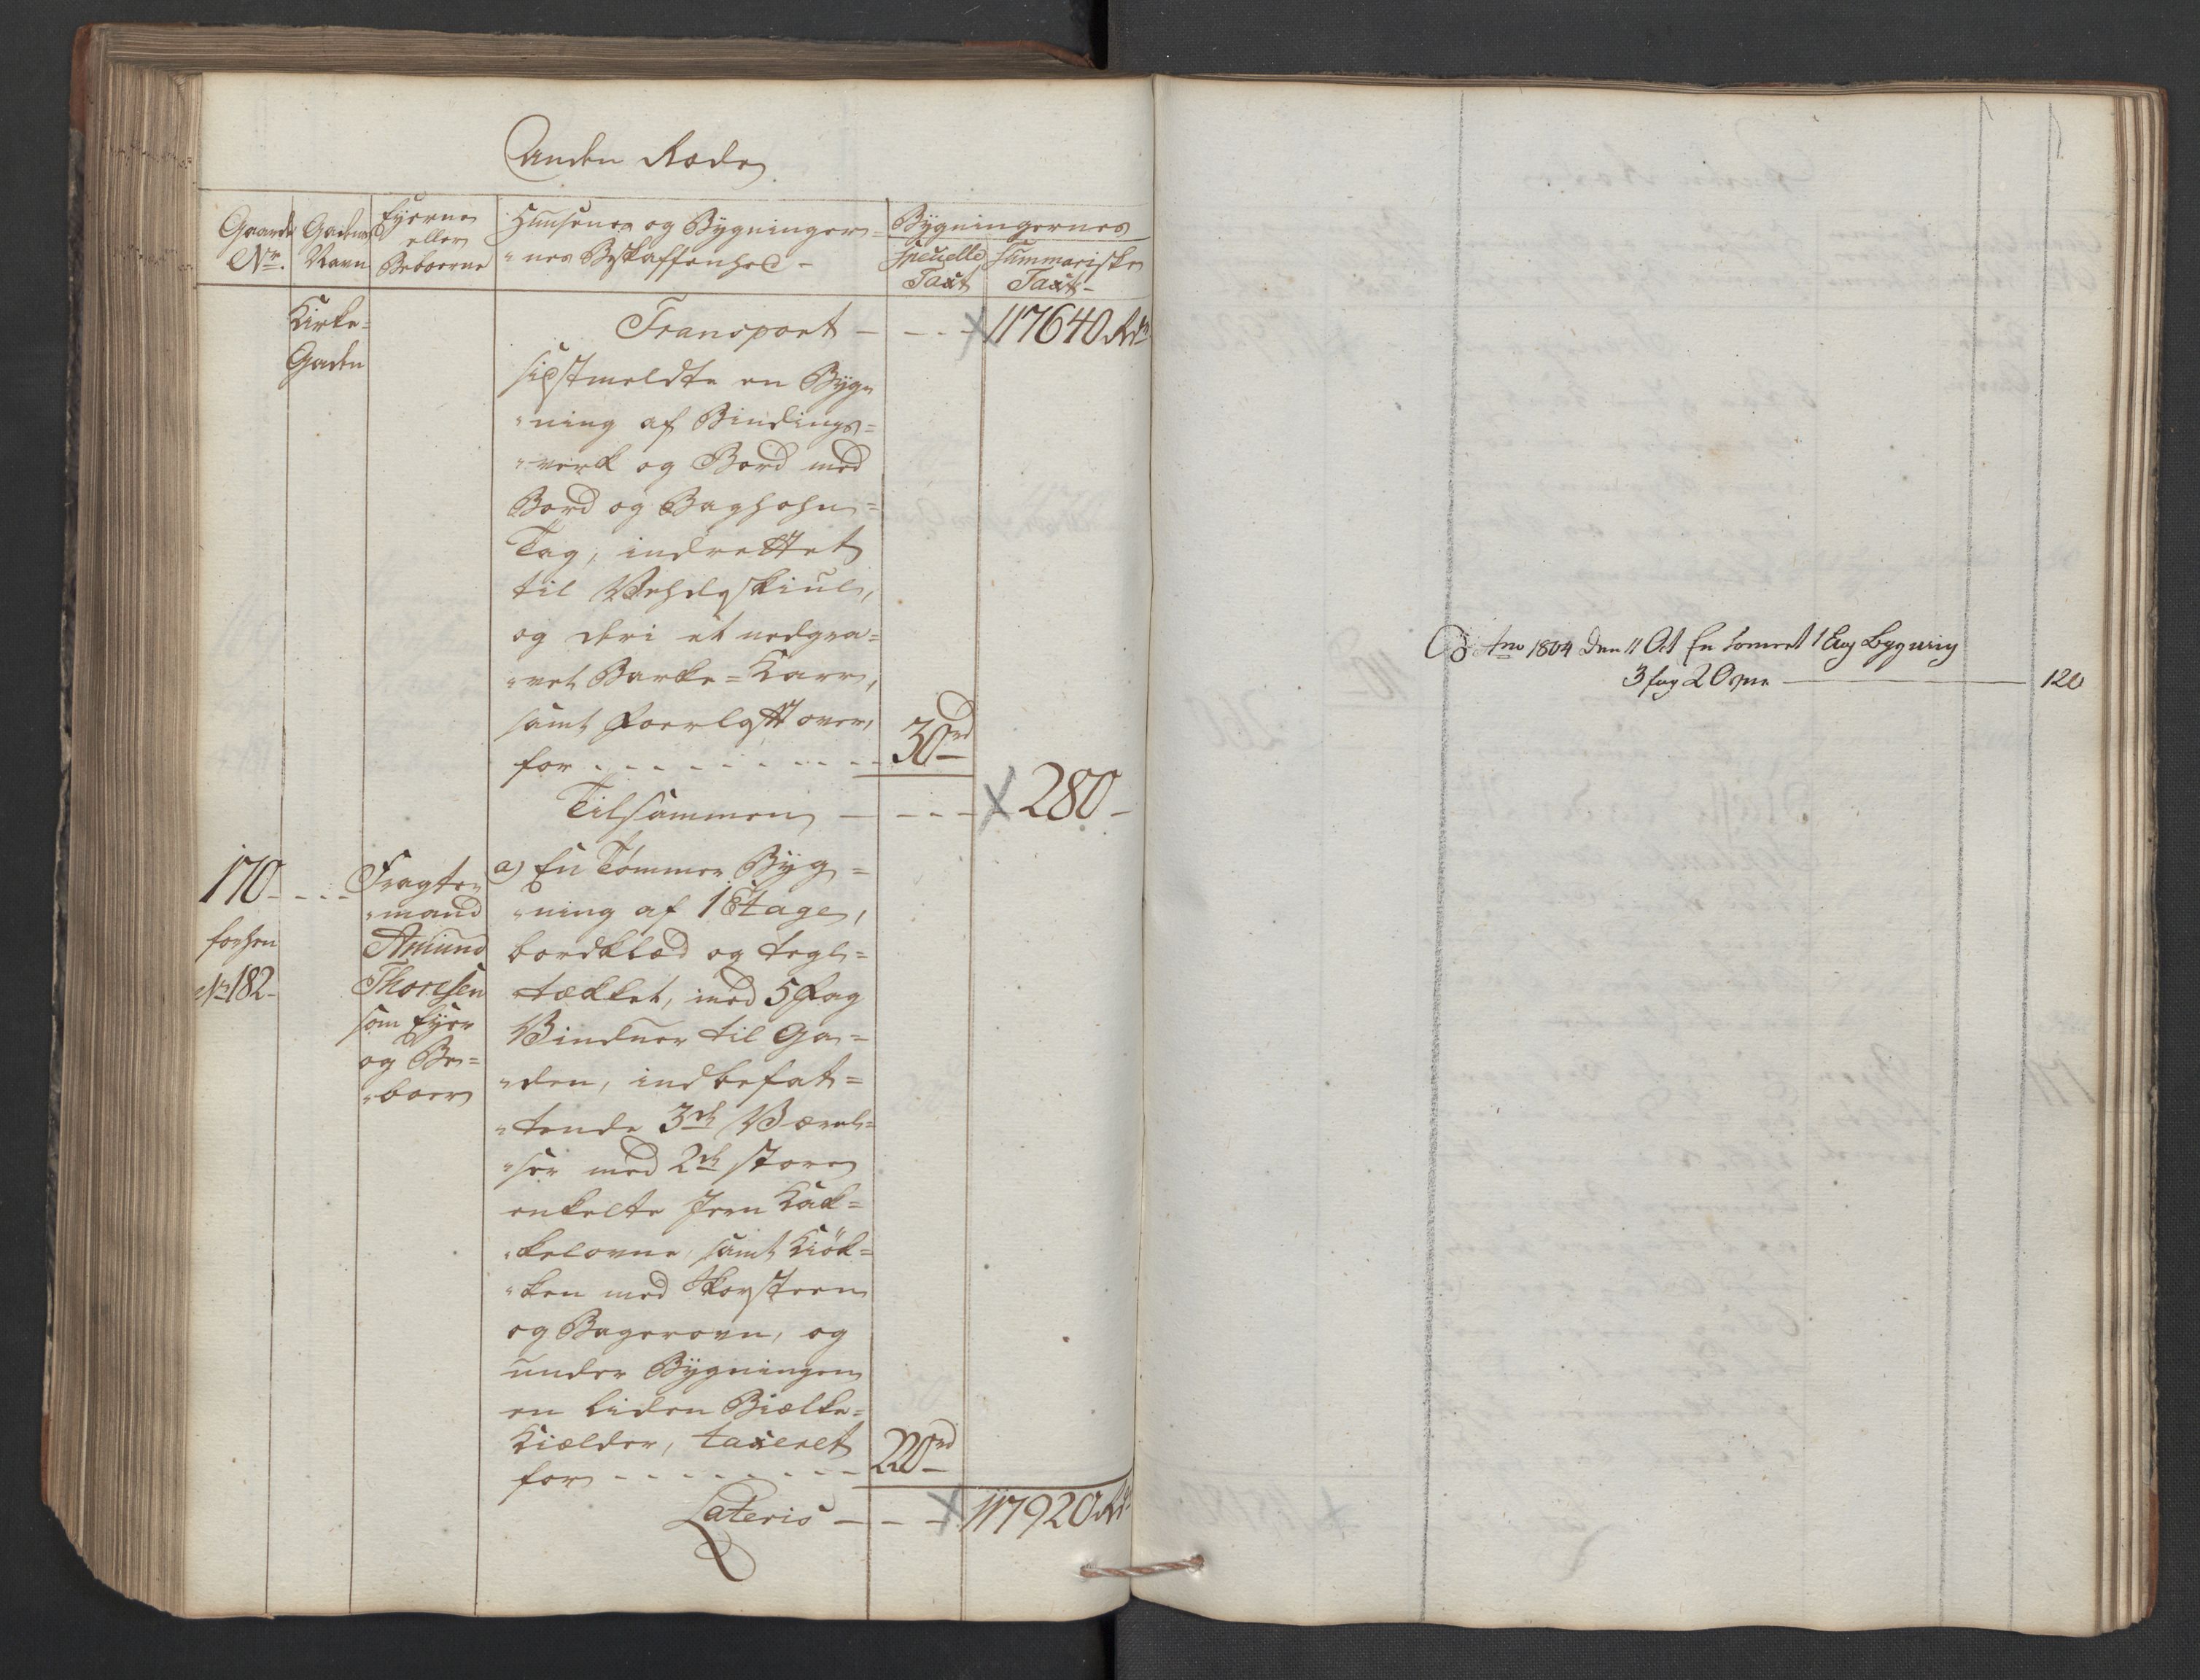 Anden Rode
Gaardens No.
Gadens Navn
Eyerne eller Beboerne
Huusenes og Bygninger=
"nes Beskaffenhed -
Bygningernes
Specielle Taxt
Summariske Taxt -
Kirke=
Gaden
Transport - - - - 117640 Rd
sidstmeldte en Byg=
"ning af Bindings=
"verk og Bord med
Bord og Baghohn=
Tag, indrettet
til Vehdeskiul,
og deri et nedgra=
"vet Barke=Karr,
samt Foerlœtt over,
for - - - - - - - - 30 rd
Tilsammen - - - - 280 -
170 - - - -
forhen
No 182 -
Fragte=
"mand
Amund
Thoresen
som Eyer
og Be=
"boer
a) En Tømmer Byg=
"ning af 1 Etage,
bordklæd og tegl=
"tækket, med 5 Fag
Vinduer til Ga=
"den, indbefat=
"tende 3de Værel=
"ser med 2de store
enkelte Jern Kak=
"kelovne, samt Kiök=
"ken med Skorsteen
og Bagerovn, og
under Bygningen
en liden Biælke=
Kiælder, taxeret
for - - - - - - - - 220 rd
Lateris - - - 117920 Rd
Ao 1804 den 11 Oct En tomret 1 Etag Bygning
3 fag 120